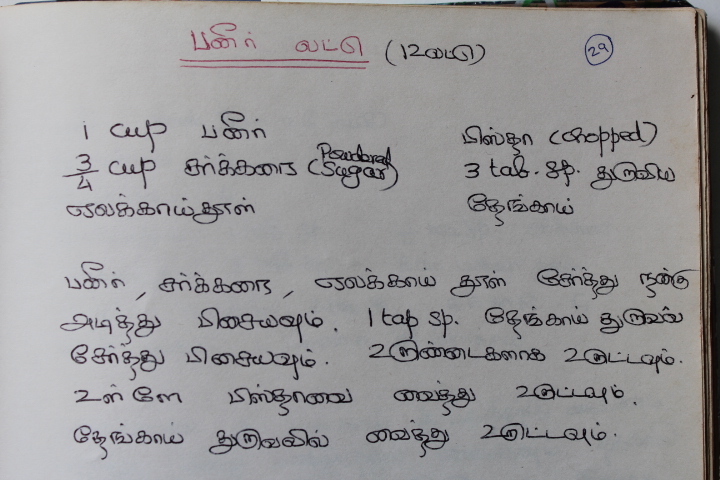 பனீர் லட்டு (12லட்டு)
29
1 cup பனீர்
3/4 cup சர்க்கரை (Powdered Sugar)
ஏலக்காய்தூள்
பிஸ்தா (chopped)
3 tab. sp. துருவிய
தேங்காய்
பனீர், சர்க்கரை, ஏலக்காய் தூள் சேர்த்து நன்கு
அடித்து பிசையவும். 1 tap sp. தேங்காய் துருவல்
சேர்த்து பிசையவும். உருண்டைகளாக உருட்டவும்.
உள்ளே பிஸ்தாவை வைத்து உருட்டவும்.
தேங்காய் துருவலில் வைத்து உருட்டவும்.